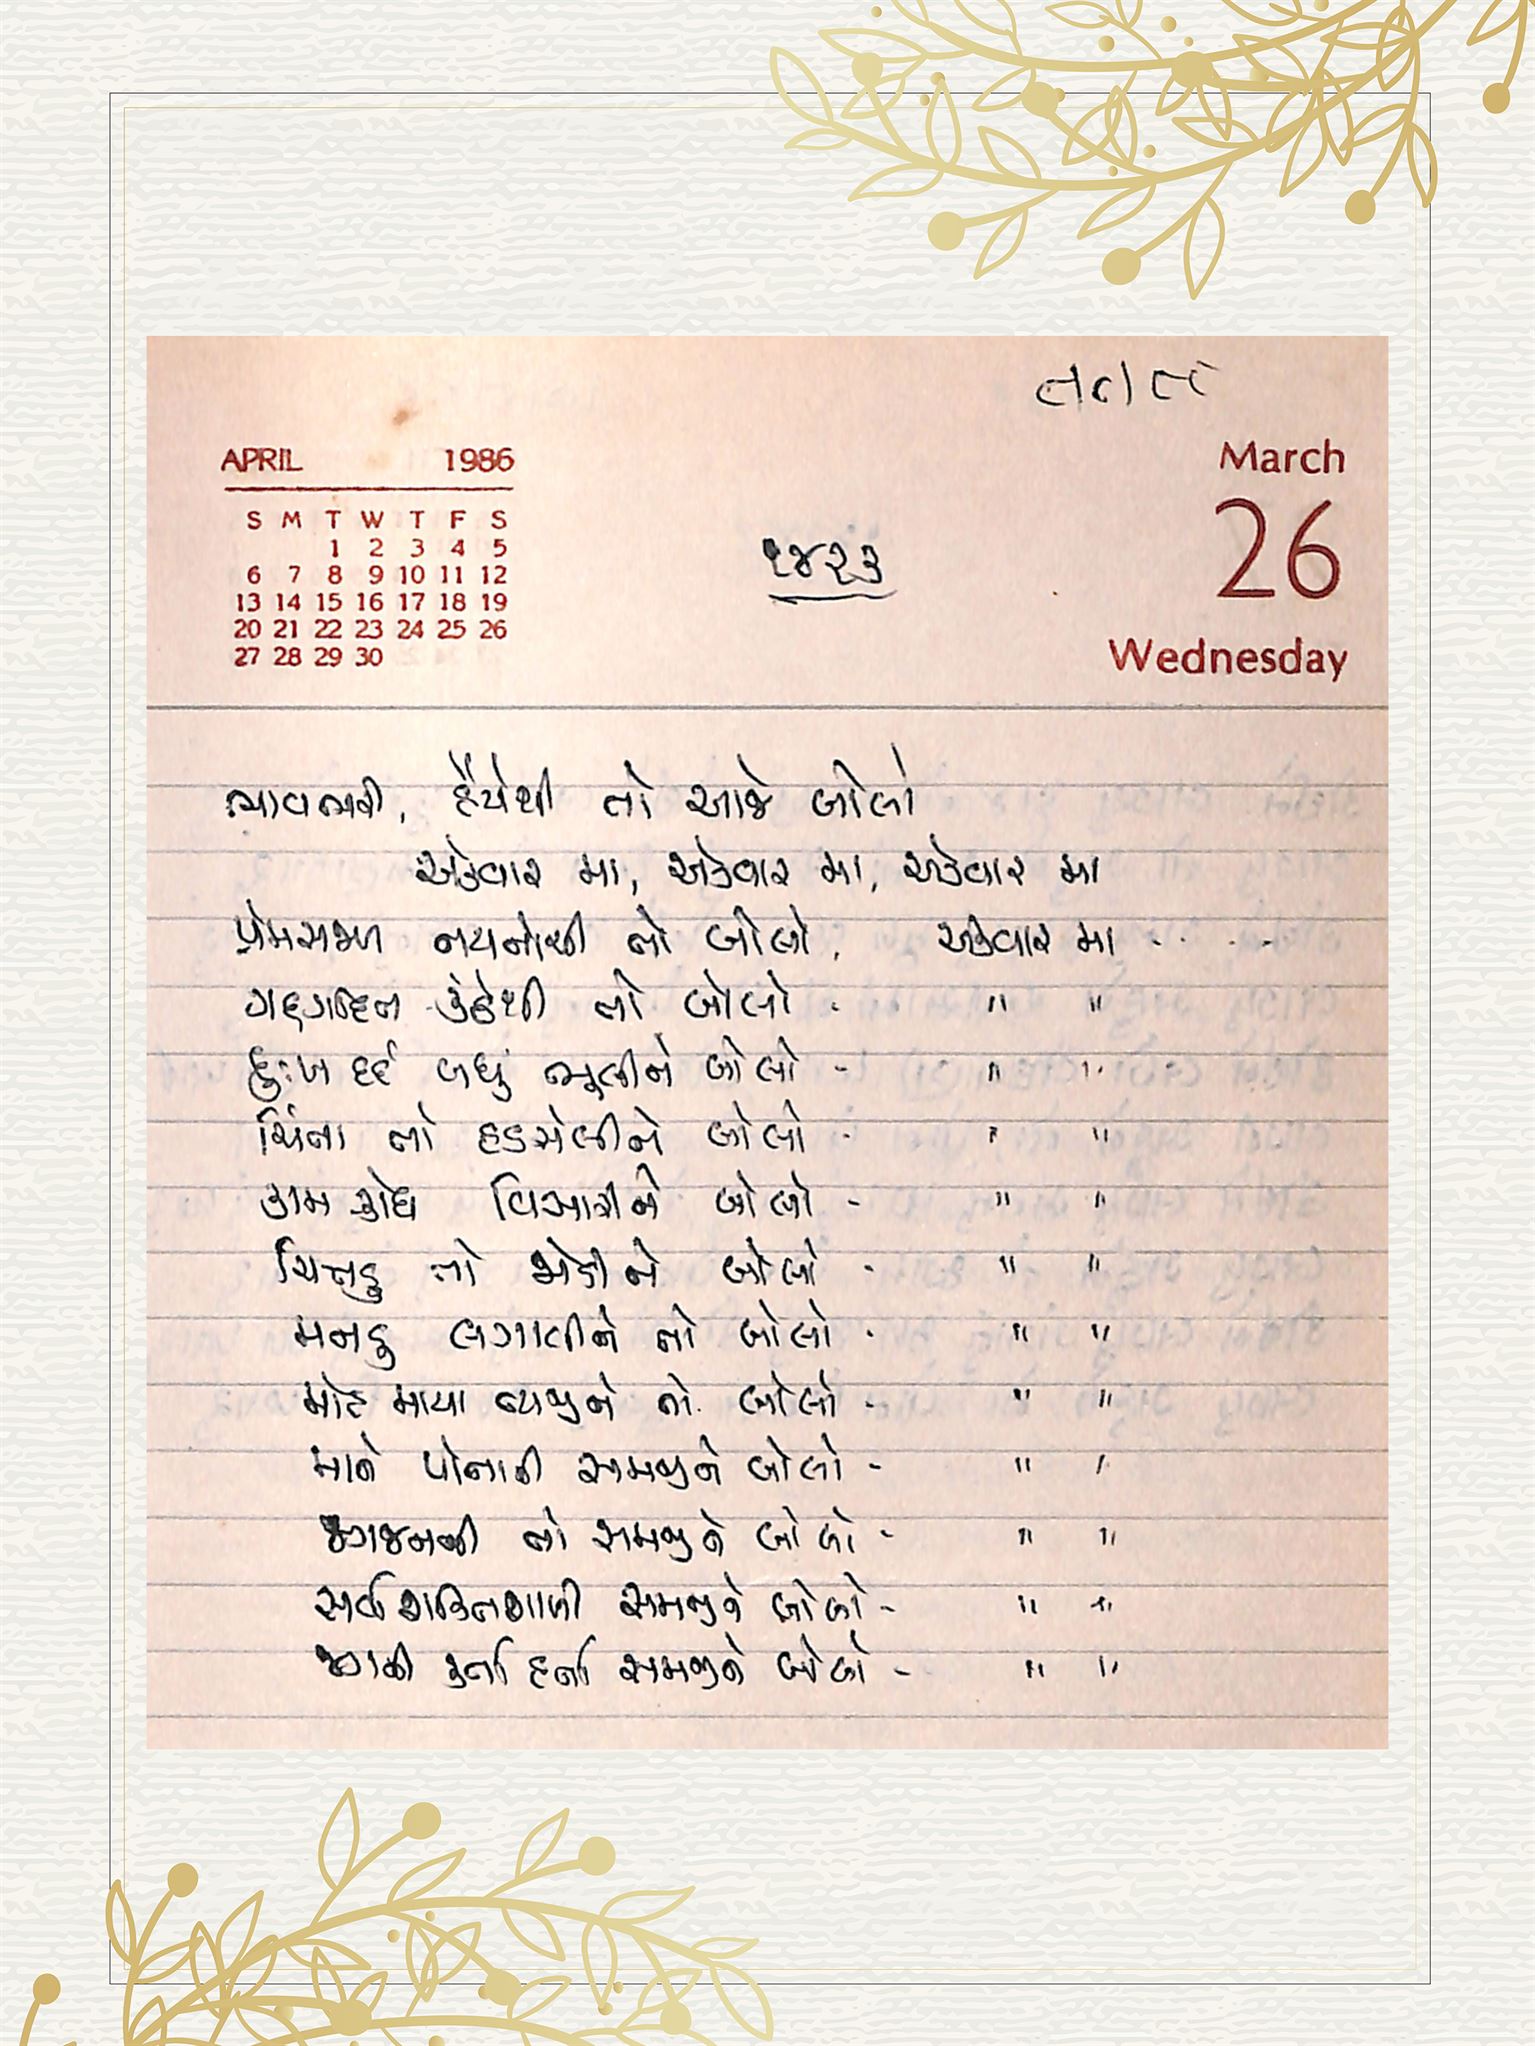 APRIL 1986
S M T W T F S
1 2 3 4 5
6 7 8 9 10 11 12
13 14 15 16 17 18 19
20 21 22 23 24 25 26
27 28 29 30
૧૪૨૩
March
26
Wednesday
ભાવભરી, હૈયેથી તો આજે બોલો
એકવાર મા, એકવાર મા, એકવાર મા
પ્રેમસભળ નયનોથી તો બોલો, એકવાર મા .....
ગદ્દગદિત કંઠેથી તો બોલો - " "
દુઃખ દર્દ બધું ભૂલીને બોલો - " "
ચિંતા તો હડસેલીને બોલો - " "
કામ ક્રોધ વિસારીને બોલો - " "
ચિત્તડુ તો જોડીને બોલો - " "
મનડુ લગાવીને તો બોલો - " "
મોહ માયા ત્યજીને તો બોલો - " "
માને પોતાની સમજીને બોલો - " "
જગજનની તો સમજીને બોલો - " "
સર્વ શક્તિશાળી સમજીને બોલો - " "
જગની કર્તા હર્તા સમજીને બોલો - " "